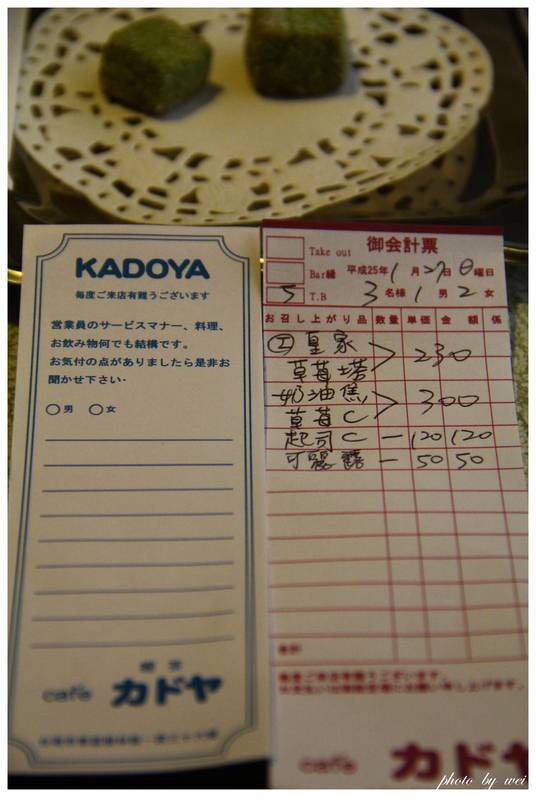 KADOYA
毎度ご来店有難うございます
営業員のサービスマナー、料理、
お飲み物何でも結構です。
お気付の点がありましたら是非お
聞かせ下さい·
○男 ○女
cafe カドヤ
御会計票
Take out
Bar縁 平成25年1月27日日曜日
5 T.B 3名様1男2女
お召し上がり品 数量 単価 金額 係
皇家
草莓塔 > 230
奶油焦
草莓C > 300
起司C 一 120 120
可麗露 一 50 50
毎度ご来店有難うございます。
cafe カドヤ
photo by wei